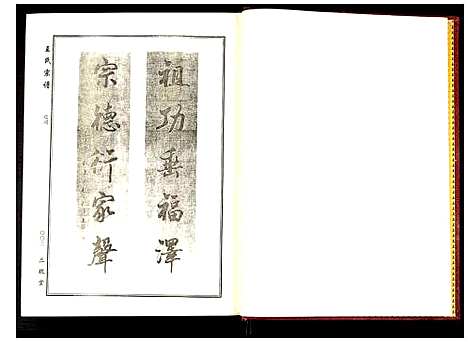 祖功垂福澤
宗德衍家聲
王氏宗譜
三槐堂